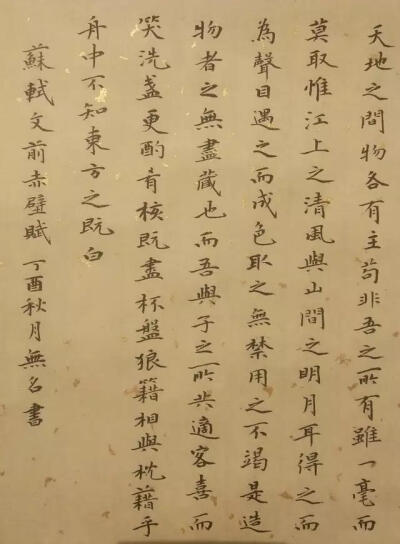 天地之間物各有主苟非吾之所有雖一毫而
莫取惟江上之清風與山間之明月耳得之而
為聲目遇之而成色取之無禁用之不竭是造
物者之無盡藏也而吾與子之所共適客喜而
笑洗盞更酌肴核既盡杯盤狼籍相與枕藉乎
舟中不知東方之既白
蘇軾文前赤壁賦丁酉秋月無名書